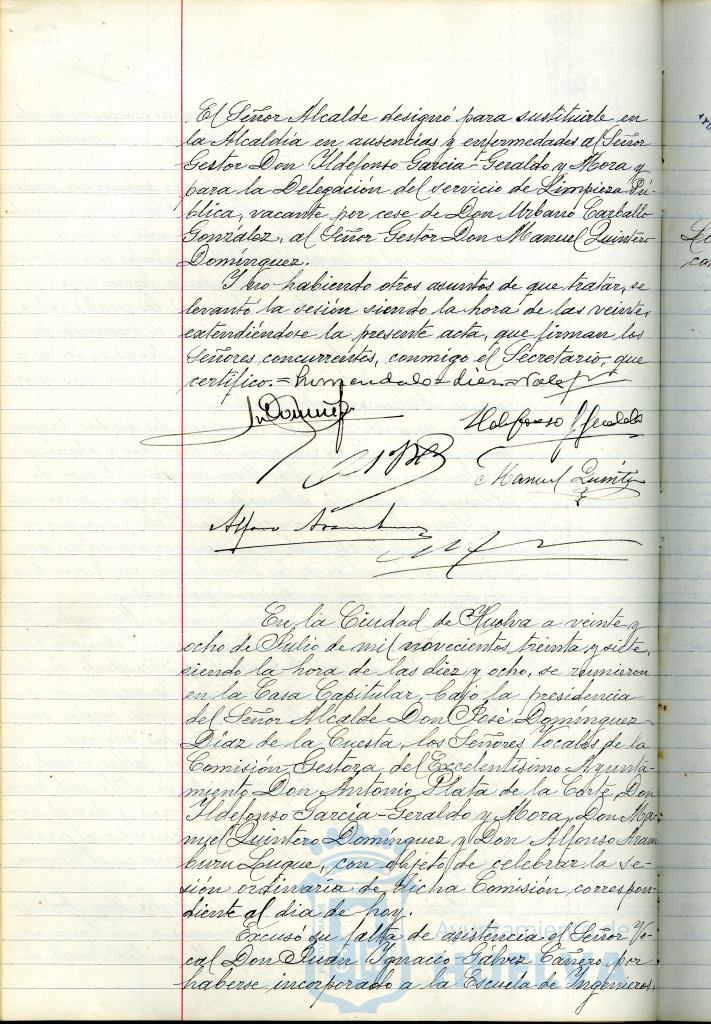 El Señor Alcalde designó para sustituirle en
la Alcaldía en ausencias y enfermedades al Señor
Gestor Don Ildefonso Garcia-Geraldo y Mora y
para la Delegación del servicio de Limpieza Pú-
blica, vacante por cese de Don Urbano Carballo
González, al Señor Gestor Don Manuel Quintero
Domínguez.
Y no habiendo otros asuntos de que tratar, se
levantó la sesión siendo la hora de las veinte,
extendiéndose la presente acta, que firman los
Señores concurrentes, conmigo el Secretario, que
certifico.=
Ildefonso G. Geraldo
Manuel Quintero
Alfonso Aramburu
En la Ciudad de Huelva a veinte y
ocho de Julio de mil novecientos treinta y siete,
siendo la hora de las diez y ocho, se reunieron
en la Casa Capitular, bajo la presidencia
del Señor Alcalde Don José Domínguez
Díaz de la Cuesta, los Señores Vocales de la
Comisión Gestora del Excelentísimo Ayunta-
miento Don Antonio Plata de la Corte, Don
Ildefonso García-Geraldo y Mora, Don Ma-
nuel Quintero Domínguez y Don Alfonso Aram-
buru Luque, con objeto de celebrar la se-
sión ordinaria de dicha Comisión correspon-
diente al dia de hoy.
Excusó su falta de asistencia el Señor Vo-
cal Don Juan Ignacio Gálvez Cañero por
haberse incorporado a la Escuela de Ingenieros,
Ayuntamiento de
HUELVA